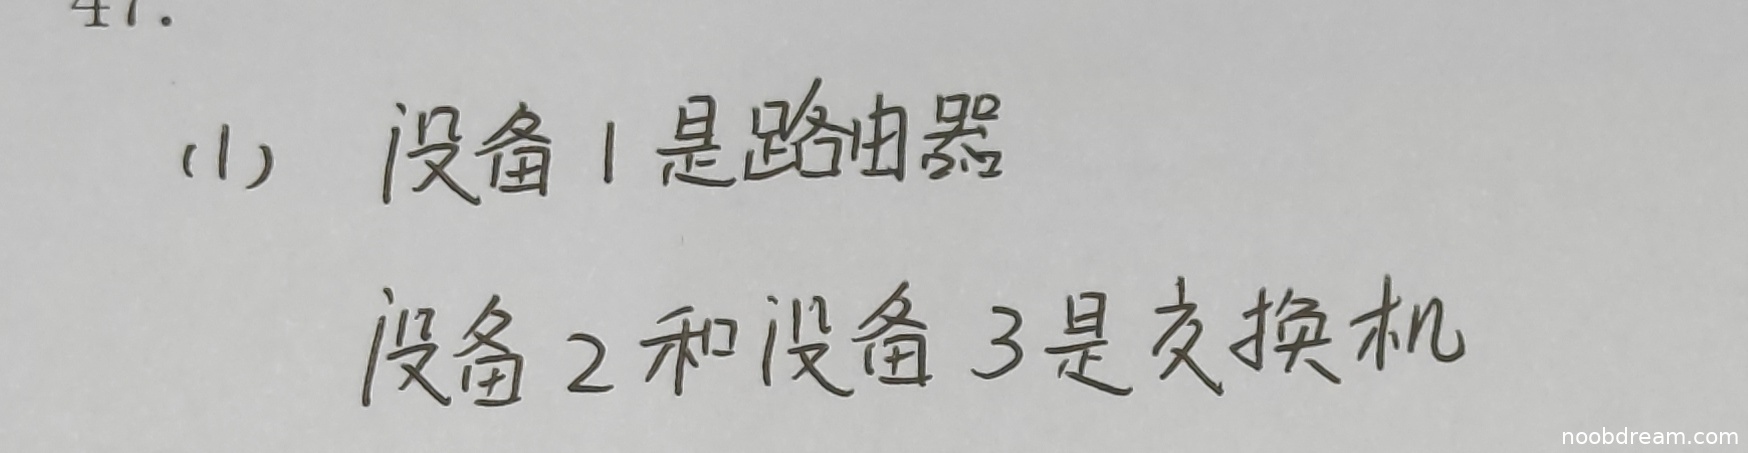 47.
(1) 设备1是路由器
设备2和设备3是交换机
noobdream.com